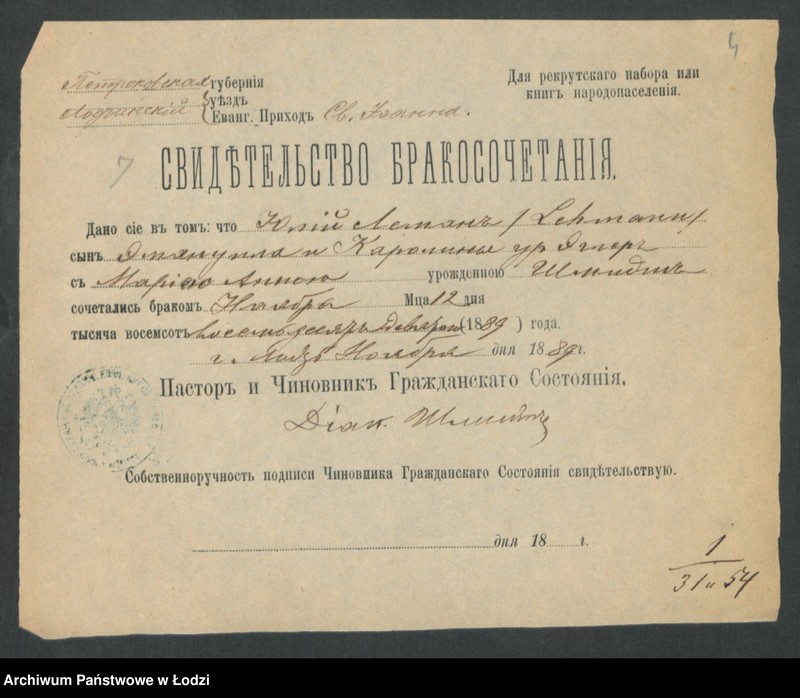 5
Петроковская губернія
Для рекрутскаго набора или
книгъ народонаселенія.
Лодзинскій уѣздъ
Еванг. Приходъ Св. Іоанна.
7
СВИДѢТЕЛЬСТВО БРАКОСОЧЕТАНІЯ.
Дано сіе въ томъ: что Юлій Леманъ /Lehmann/
сынъ Эмануила и Каролины ур
съ Маріею Анною урожденною Шмидтъ
сочетались бракомъ Ноября Мца 12 дня
тысяча восемсотъ восемьдесятъ (1889) года.
г. Лодзь Ноября дня 1889 г.
Пасторъ и Чиновникъ Гражданскаго Состоянія.
Діак. Шмидтъ
Собственноручность подписи Чиновника Гражданскаго Состоянія свидѣтельствую.
дня 18 г.
1
31 и 54
Archiwum Państwowe w Łodzi